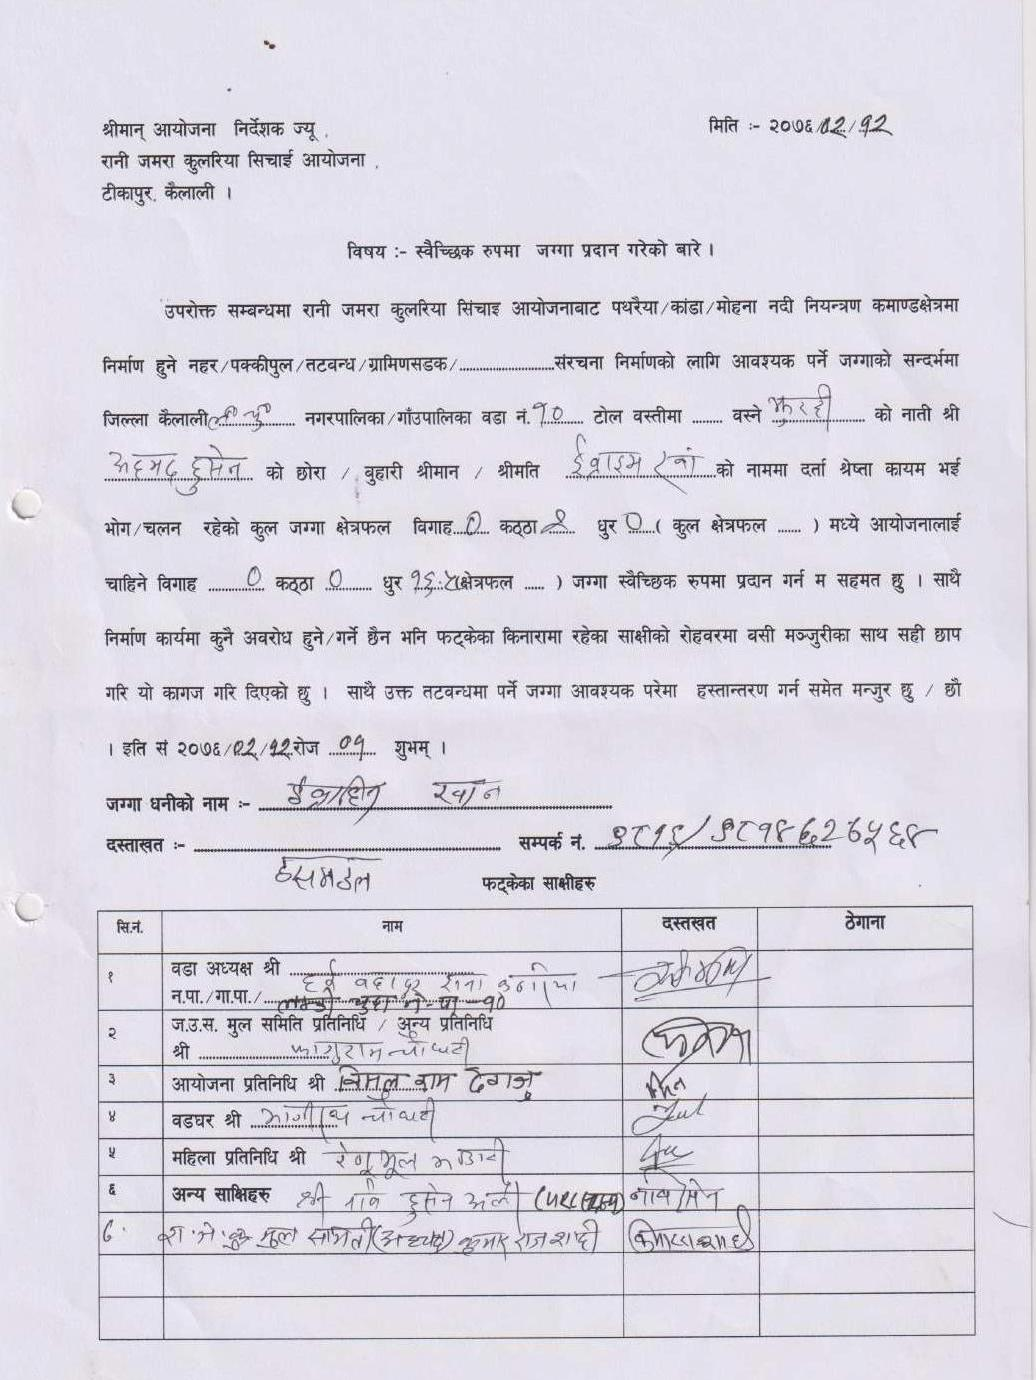 श्रीमान् आयोजना निर्देशक ज्यू ,
मिति :- २०७६/०२/१२
रानी जमरा कुलरिया सिचाई आयोजना ,
टीकापुर, कैलाली ।
विषय :- स्वैच्छिक रुपमा जग्गा प्रदान गरेको बारे ।
उपरोक्त सम्बन्धमा रानी जमरा कुलरिया सिंचाइ आयोजनाबाट पथरैया/कांडा/मोहना नदी नियन्त्रण कमाण्डक्षेत्रमा
निर्माण हुने नहर/पक्कीपुल/तटवन्ध/ग्रामिणसडक/..............................संरचना निर्माणको लागि आवश्यक पर्ने जग्गाको सन्दर्भमा
जिल्ला कैलाली ल.चु नगरपालिका/गाँउपालिका वडा नं. १० टोल वस्तीमा ........ वस्ने को नाती श्री
अहमद हुसेन को छोरा / बुहारी श्रीमान / श्रीमति ईब्राहम खाँ को नाममा दर्ता श्रेष्ता कायम भई
भोग/चलन रहेको कुल जग्गा क्षेत्रफल विगाह ० कठ्ठा धुर ० ( कुल क्षेत्रफल ...... ) मध्ये आयोजनालाई
चाहिने विगाह ० कठ्ठा ० धुर १६.५ क्षेत्रफल ..... ) जग्गा स्वैच्छिक रुपमा प्रदान गर्न म सहमत छु । साथै
निर्माण कार्यमा कुनै अवरोध हुने/गर्ने छैन भनि फट्केका किनारामा रहेका साक्षीको रोहवरमा वसी मञ्जुरीका साथ सही छाप
गरि यो कागज गरि दिएको छु । साथै उक्त तटवन्धमा पर्ने जग्गा आवश्यक परेमा हस्तान्तरण गर्न समेत मन्जुर छु / छौ
। इति सं २०७६/०२/१२ रोज ०१ शुभम् ।
जग्गा धनीको नाम :- ईब्राहिम खान
दस्ताखत :- सम्पर्क नं.
फट्केका साक्षीहरु
सि.नं. नाम दस्तखत ठेगाना
१ वडा अध्यक्ष श्री हर्क बहादुर राना
न.पा./गा.पा./ लम्की चुहा न.पा-१०
२ ज.उ.स. मुल समिति प्रतिनिधि / अन्य प्रतिनिधि
श्री फागुराम चौधरी
३ आयोजना प्रतिनिधि श्री विमल राम देवाजु
४ वडघर श्री चौधरी
५ महिला प्रतिनिधि श्री
६ अन्य साक्षिहरु श्री हुसेन अली
मुल समिती (अध्यक्ष) कुमार राज शाही